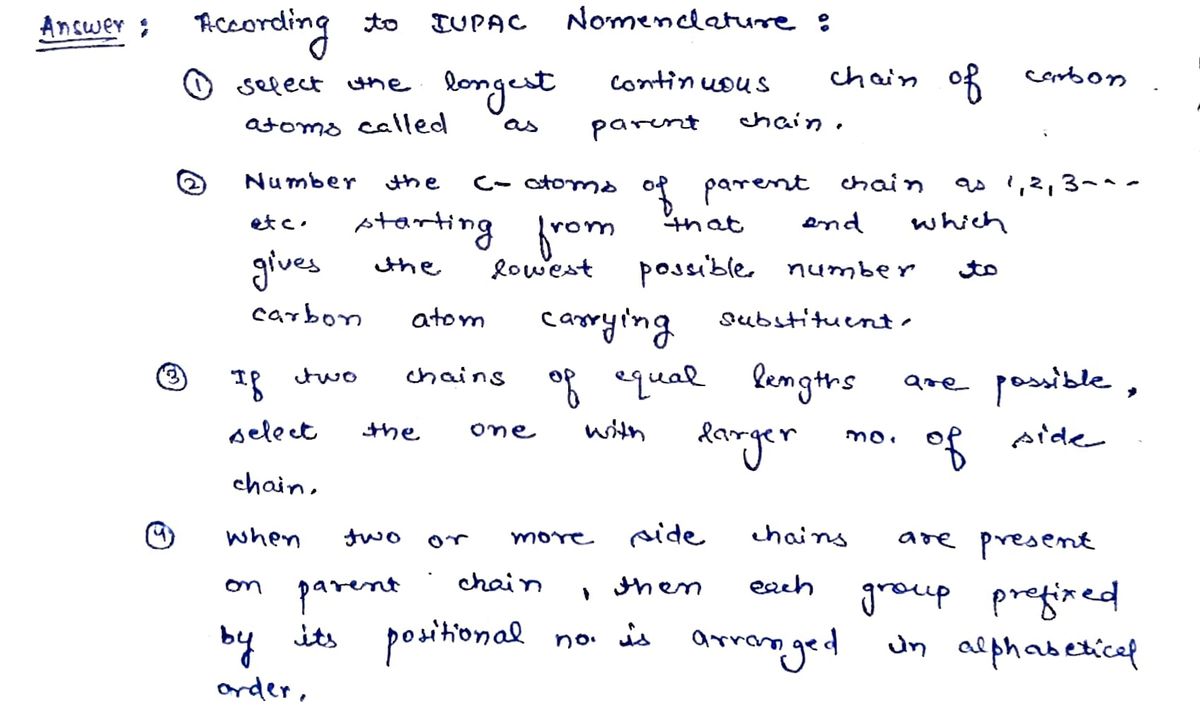 Answer : According to IUPAC Nomenclature :
① select the longest continuous chain of carbon
atoms called as parent chain.
② Number the C- atoms of parent chain as 1,2,3---
etc. starting from that end which
gives the lowest possible number to
carbon atom carrying substituent.
③ If two chains of equal lengths are possible,
select the one with larger no. of side
chain.
④ when two or more side chains are present
on parent chain, then each group prefixed
by its positional no. is arranged in alphabetical
order.